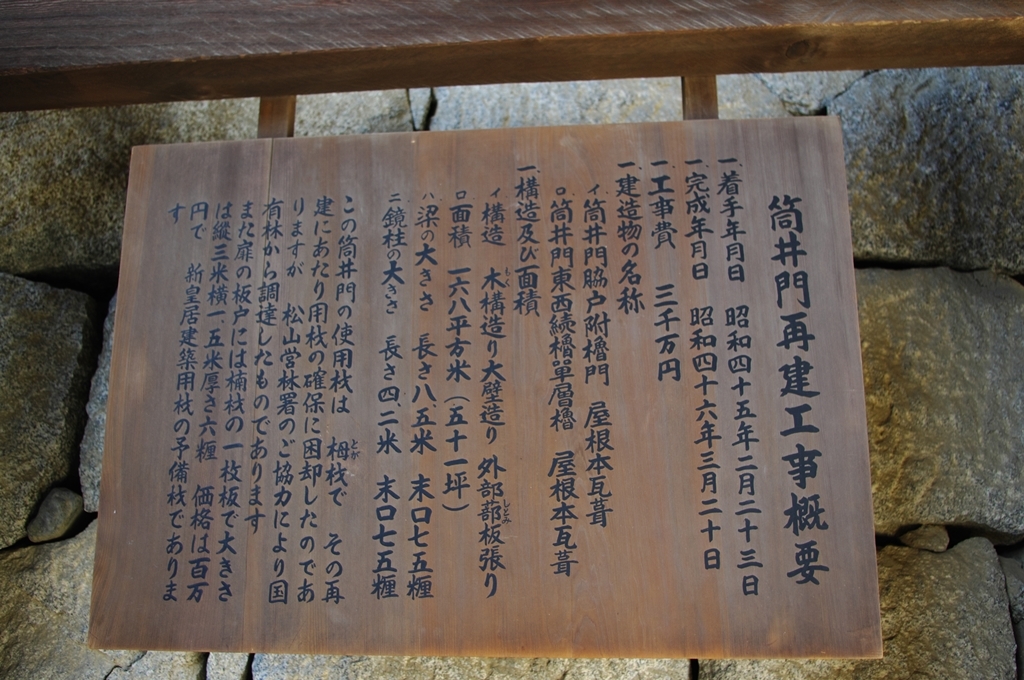 筒井門再建工事概要
一、着手年月日 昭和四十五年二月二十三日
一、完成年月日 昭和四十六年三月二十日
一、工事費 三千万円
一、建造物の名称
イ 筒井門脇戸附櫓門 屋根本瓦葺
ロ 筒井門東西続櫓單層櫓 屋根本瓦葺
一、構造及び面積
イ 構造 木構造り大壁造り 外部蔀板張り
ロ 面積 一六八平方米(五十一坪)
ハ 梁の大きさ 長さ八.五米 末口七五糎
ニ 鏡柱の大きさ 長さ四.二米 末口七五糎
この筒井門の使用材は 栂材で その再
建にあたり用材の確保に困却したのであ
りますが 松山営林署のご協力により国
有林から調達したものであります
また扉の板戸には楠材の一枚板で大きさ
は縦三米横一.五米厚さ六糎 価格は百万
円で 新皇居建築用材の予備材でありま
す